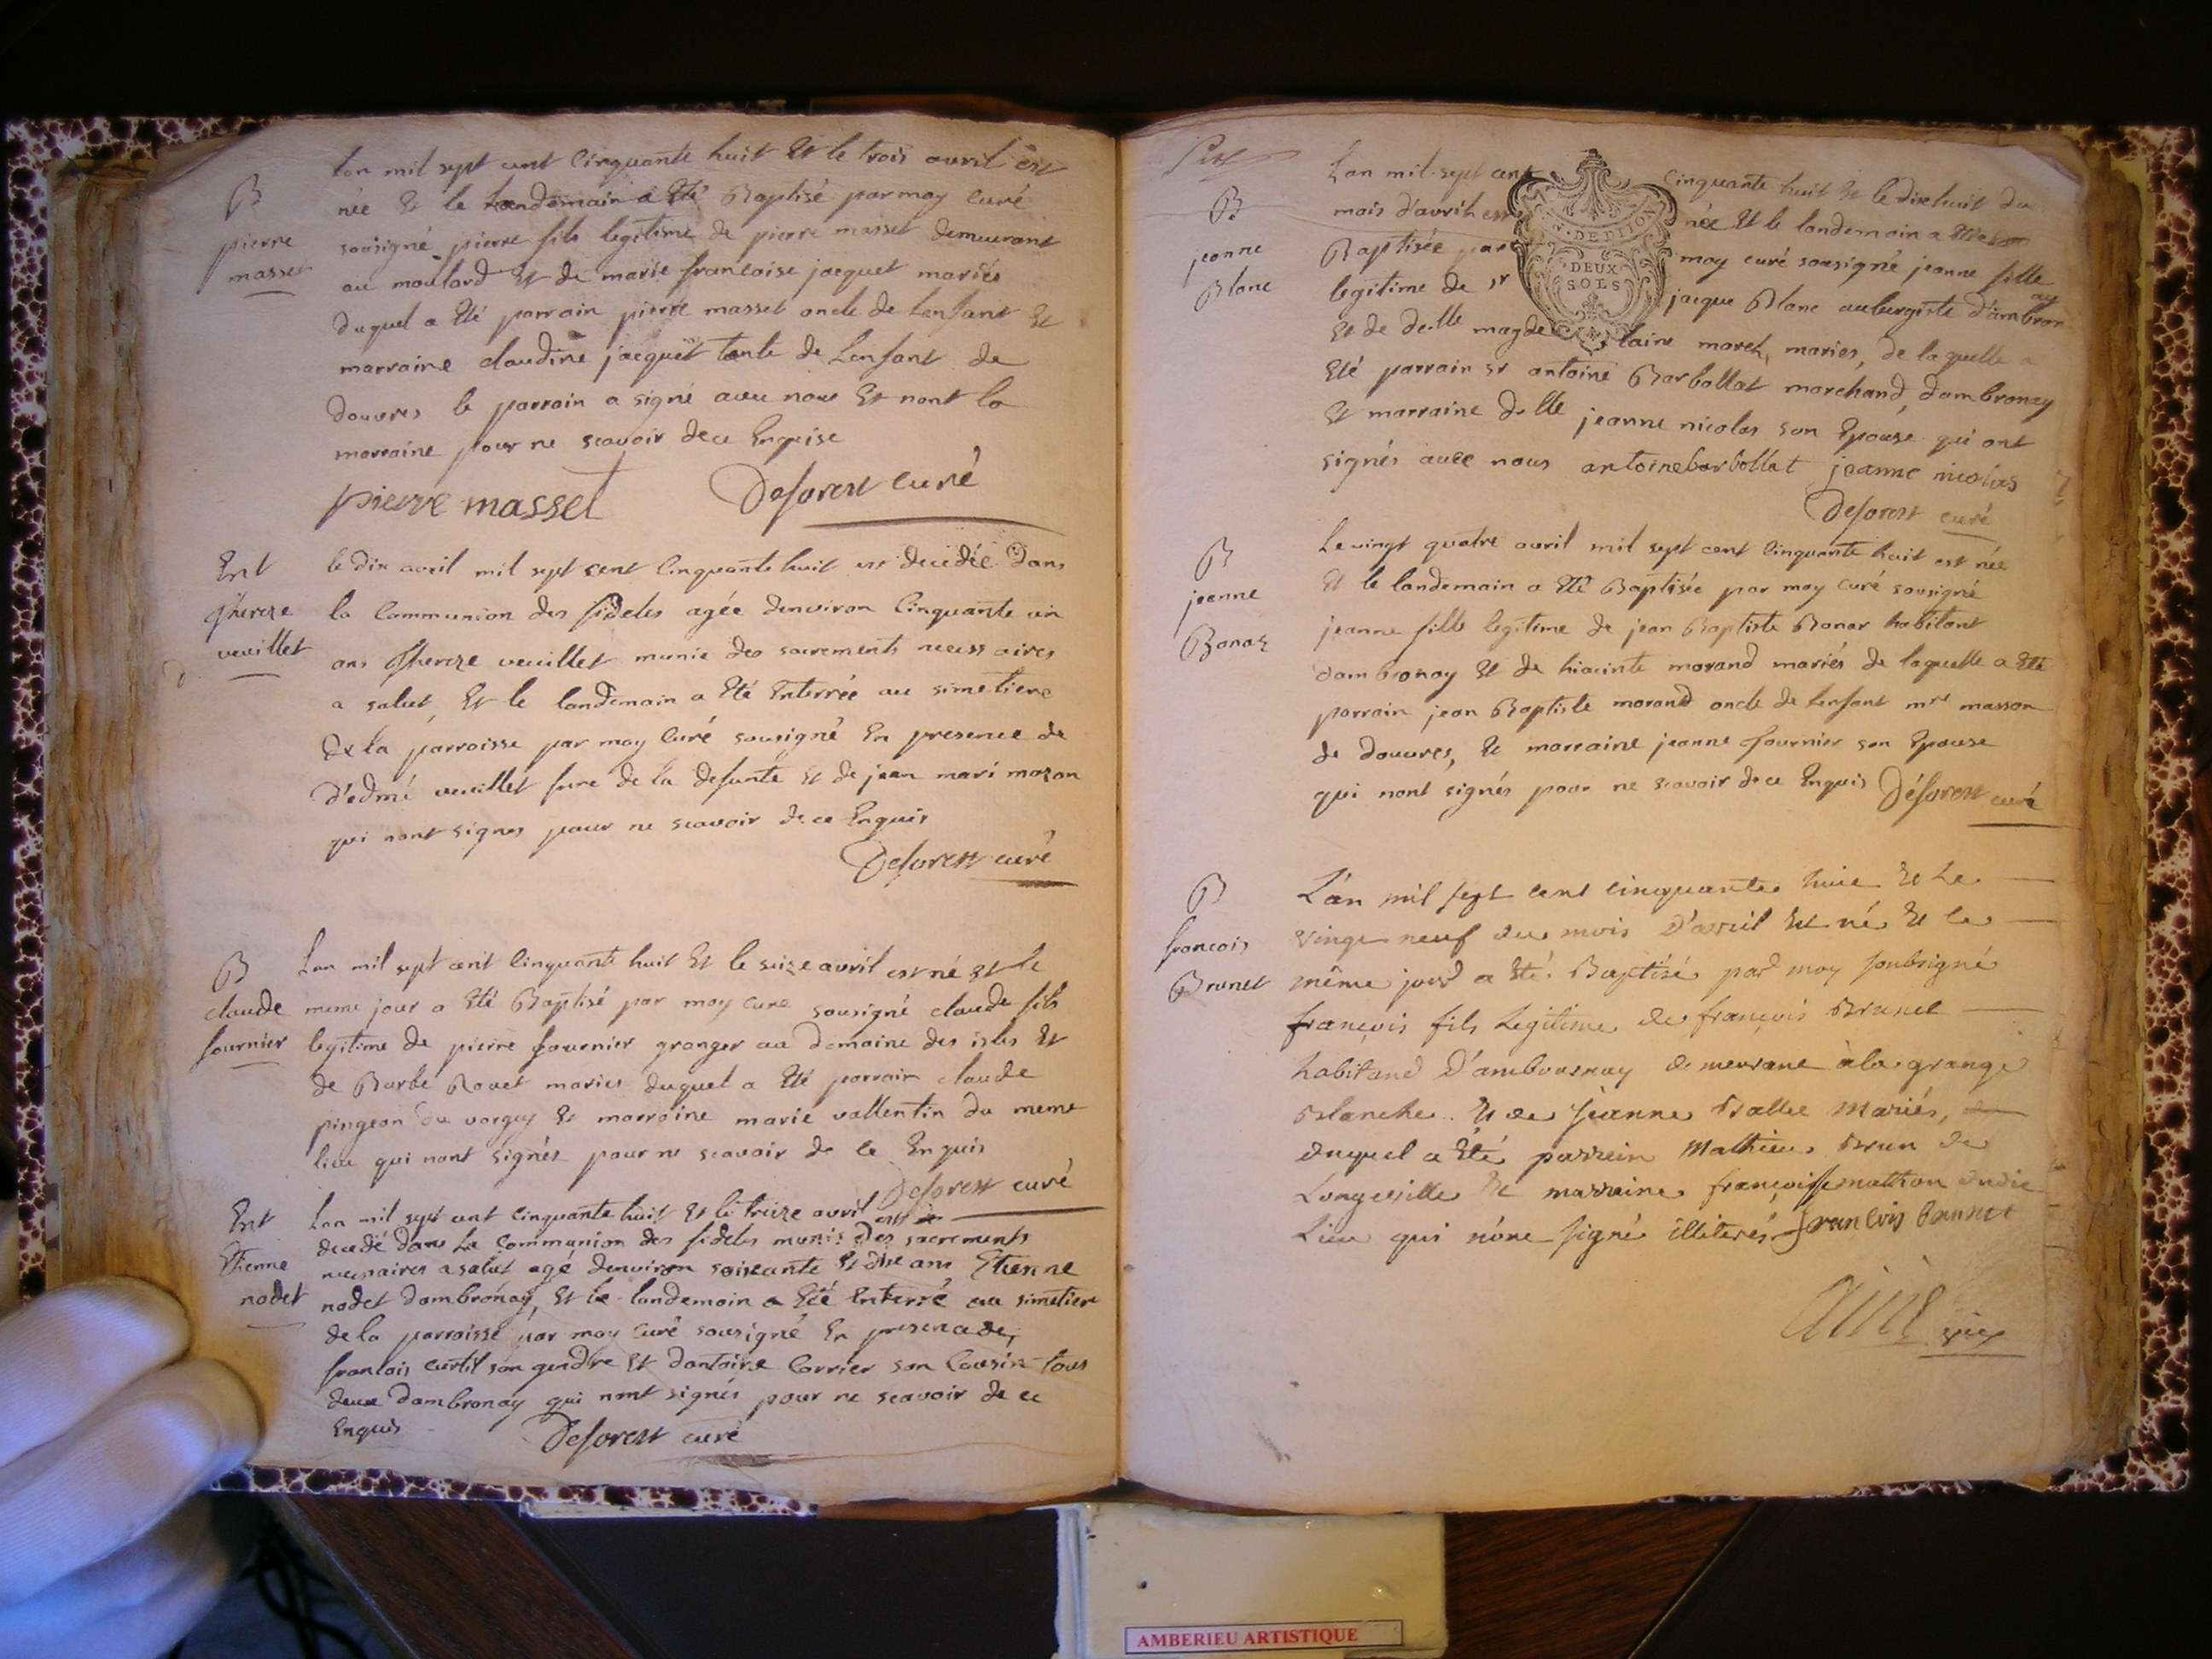 B
pierre
masset
Lan mil sept cent Cinquante huit Et le trois avril est
née Et le Landemain a Eté Baptisé par moy Curé
sousigné pierre fils legitime de pierre masset demeurant
au moulard Et de marie francoise jacquet mariés
duquel a Eté parrain pierre masset oncle de Lenfant Et
marraine claudine jacquet tante de Lenfant de
douvres le parrain a signé avec nous Et nont la
marraine pour ne scavoir de ce Enquise
pierre masset Deforest curé
Ent
therese
veuillet
le dix avril mil sept cent Cinquante huit est decedée dans
la Communion des fideles agée denviron Cinquante un
ans therese veuillet munie des sacrements necessaires
a salut, Et le landemain a Eté Enterrée au simetiere
de la parroisse par moy Curé sousigné En presence de
d'edmé veuillet frere de la defunte Et de jean mari mozon
qui nont signes pour ne scavoir de ce Enquis
Deforest curé
B
claude
fournier
Lan mil sept cent Cinquante huit Et le seize avril est né et le
meme jour a Eté Baptisé par moy Cure sousigné claude fils
legitime de pierre fournier granger au domaine des isles Et
de Barbe Rouet mariés duquel a Eté parrain claude
pingeon du vorgey Et marraine marie vallentin du meme
lieu qui nont signés pour ne scavoir de ce Enquis
Deforest curé
Ent
Etienne
nodet
Lan mil sept cent Cinquante huit Et le treize avril est
decedé dans La Communion des fideles munis des sacrements
necessaires a salut agé denviron soixante Et dix ans Etienne
nodet dambronay, Et le landemain a Eté Enterré au simetiere
de la parroisse par moy Curé sousigné En presence de
francois curtil son gendre Et dantoine Corrier son Cousin tous
deux dambronay qui nont signés pour ne scavoir de ce
Enquis Deforest curé
B
jeanne
Blanc
Lan mil sept cent Cinquante huit Et le dixhuit du
mois d'avril est née Et le landemain a Eté
Baptisée par moy curé sousigné jeanne fille
legitime de sr jacque Blanc aubergiste d'ambronay
Et de delle magdelaine march, mariés, de laquelle a
Eté parrain sr antoine Barbollat marchand, dambronay
Et marraine delle jeanne nicolas son Epouse qui ont
signés avec nous antoine barbollat jeanne nicolas
Deforest curé
N. DE DIJON
DEUX
SOLS
B
jeanne
Bonaz
Le vingt quatre avril mil sept cent Cinquante huit est née
Et le landemain a Eté Baptisée par moy curé sousigné
jeanne fille legitime de jean Baptiste Bonaz habitant
dambronay Et de hiacinte morand mariés de laquelle a Eté
parrain jean Baptiste morand oncle de Lenfant mre masson
de douvres, Et marraine jeanne fournier son Epouse
qui nont signés pour ne scavoir de ce Enquis Déforest curé
B
francois
Brunet
L'an mil sept cent cinquante huit Et Le
vingt neuf du mois D'avril Est né Et le
même jour a Eté Baptisé par moy soubsigné
françois fils Legitime de françois Brunet
habitand D'ambournay demeurant à la grange
Blanche. Et de jeanne Ballet Mariés,
duquel a Eté parrein Mathieu Brun de
Longeville Et marraine françoisse mathon dudit
Lieu qui n'ont signé illiterés francois brunet
AMBERIEU ARTISTIQUE